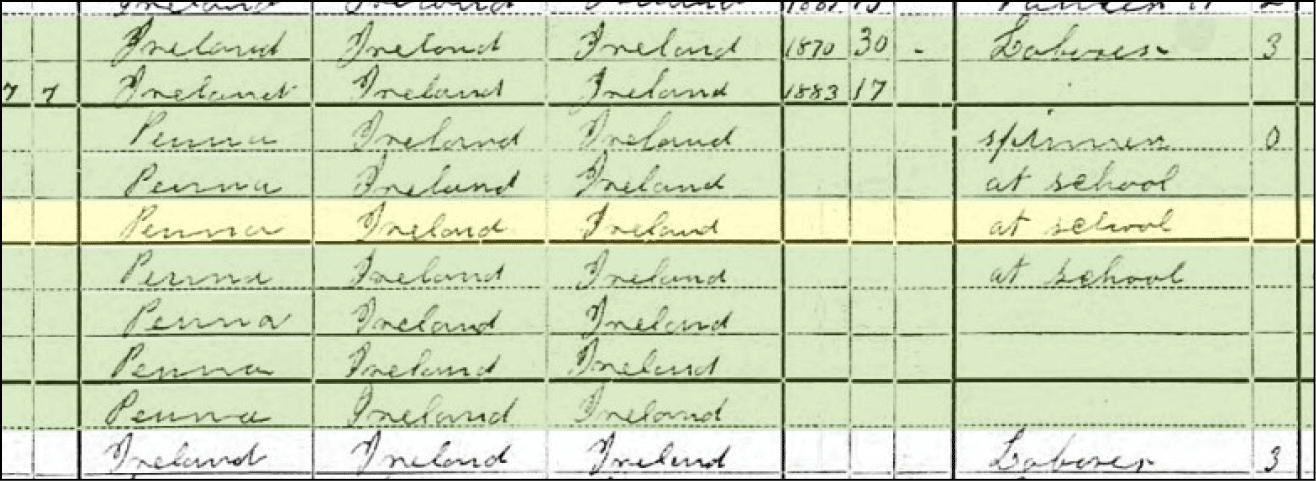 Ireland Ireland Ireland 1881 19
Ireland Ireland Ireland 1870 30 - Laborer 3
7 7 Ireland Ireland Ireland 1883 17
Penna Ireland Ireland spinner 0
Penna Ireland Ireland at school
Penna Ireland Ireland at school
Penna Ireland Ireland at school
Penna Ireland Ireland
Penna Ireland Ireland
Penna Ireland Ireland
Ireland Ireland Ireland Laborer 3